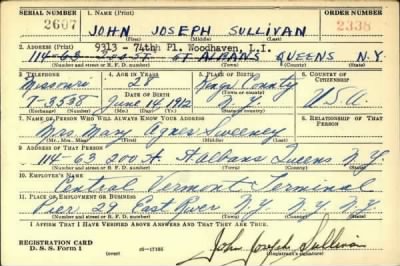 SERIAL NUMBER 1. NAME (Print) ORDER NUMBER
2607 JOHN JOSEPH SULLIVAN 2338
(First) (Middle) (Last)
2. ADDRESS (Print) 9313 - 74th Pl. Woodhaven, L.I.
114-63 200 ST. ST ALBANS QUEENS N.Y.
(Number and street or R. F. D. number) (Town) (County) (State)
3. TELEPHONE 4. AGE IN YEARS 5. PLACE OF BIRTH 6. COUNTRY OF CITIZENSHIP
Missouri 28 Kings County
DATE OF BIRTH
7-3538 June 14, 1912 N.Y. U.S.A.
(Exchange) (Number) (Mo.) (Day) (Yr.) (State or country)
7. NAME OF PERSON WHO WILL ALWAYS KNOW YOUR ADDRESS 8. RELATIONSHIP OF THAT PERSON
Mrs. Mary Agnes Sweeney
(Mr., Mrs., Miss) (First) (Middle) (Last)
9. ADDRESS OF THAT PERSON
114-63 200 St. St Albans Queens N.Y.
(Number and street or R. F. D. number) (Town) (County) (State)
10. EMPLOYER'S NAME
Central Vermont Terminal
11. PLACE OF EMPLOYMENT OR BUSINESS
Pier 29 East River N.Y. N.Y. N.Y.
(Number and street or R. F. D. number) (Town) (County) (State)
I AFFIRM THAT I HAVE VERIFIED ABOVE ANSWERS AND THAT THEY ARE TRUE.
REGISTRATION CARD
D. S. S. Form 1 (over) 16-17105 John Joseph Sullivan
(Registrant's signature)